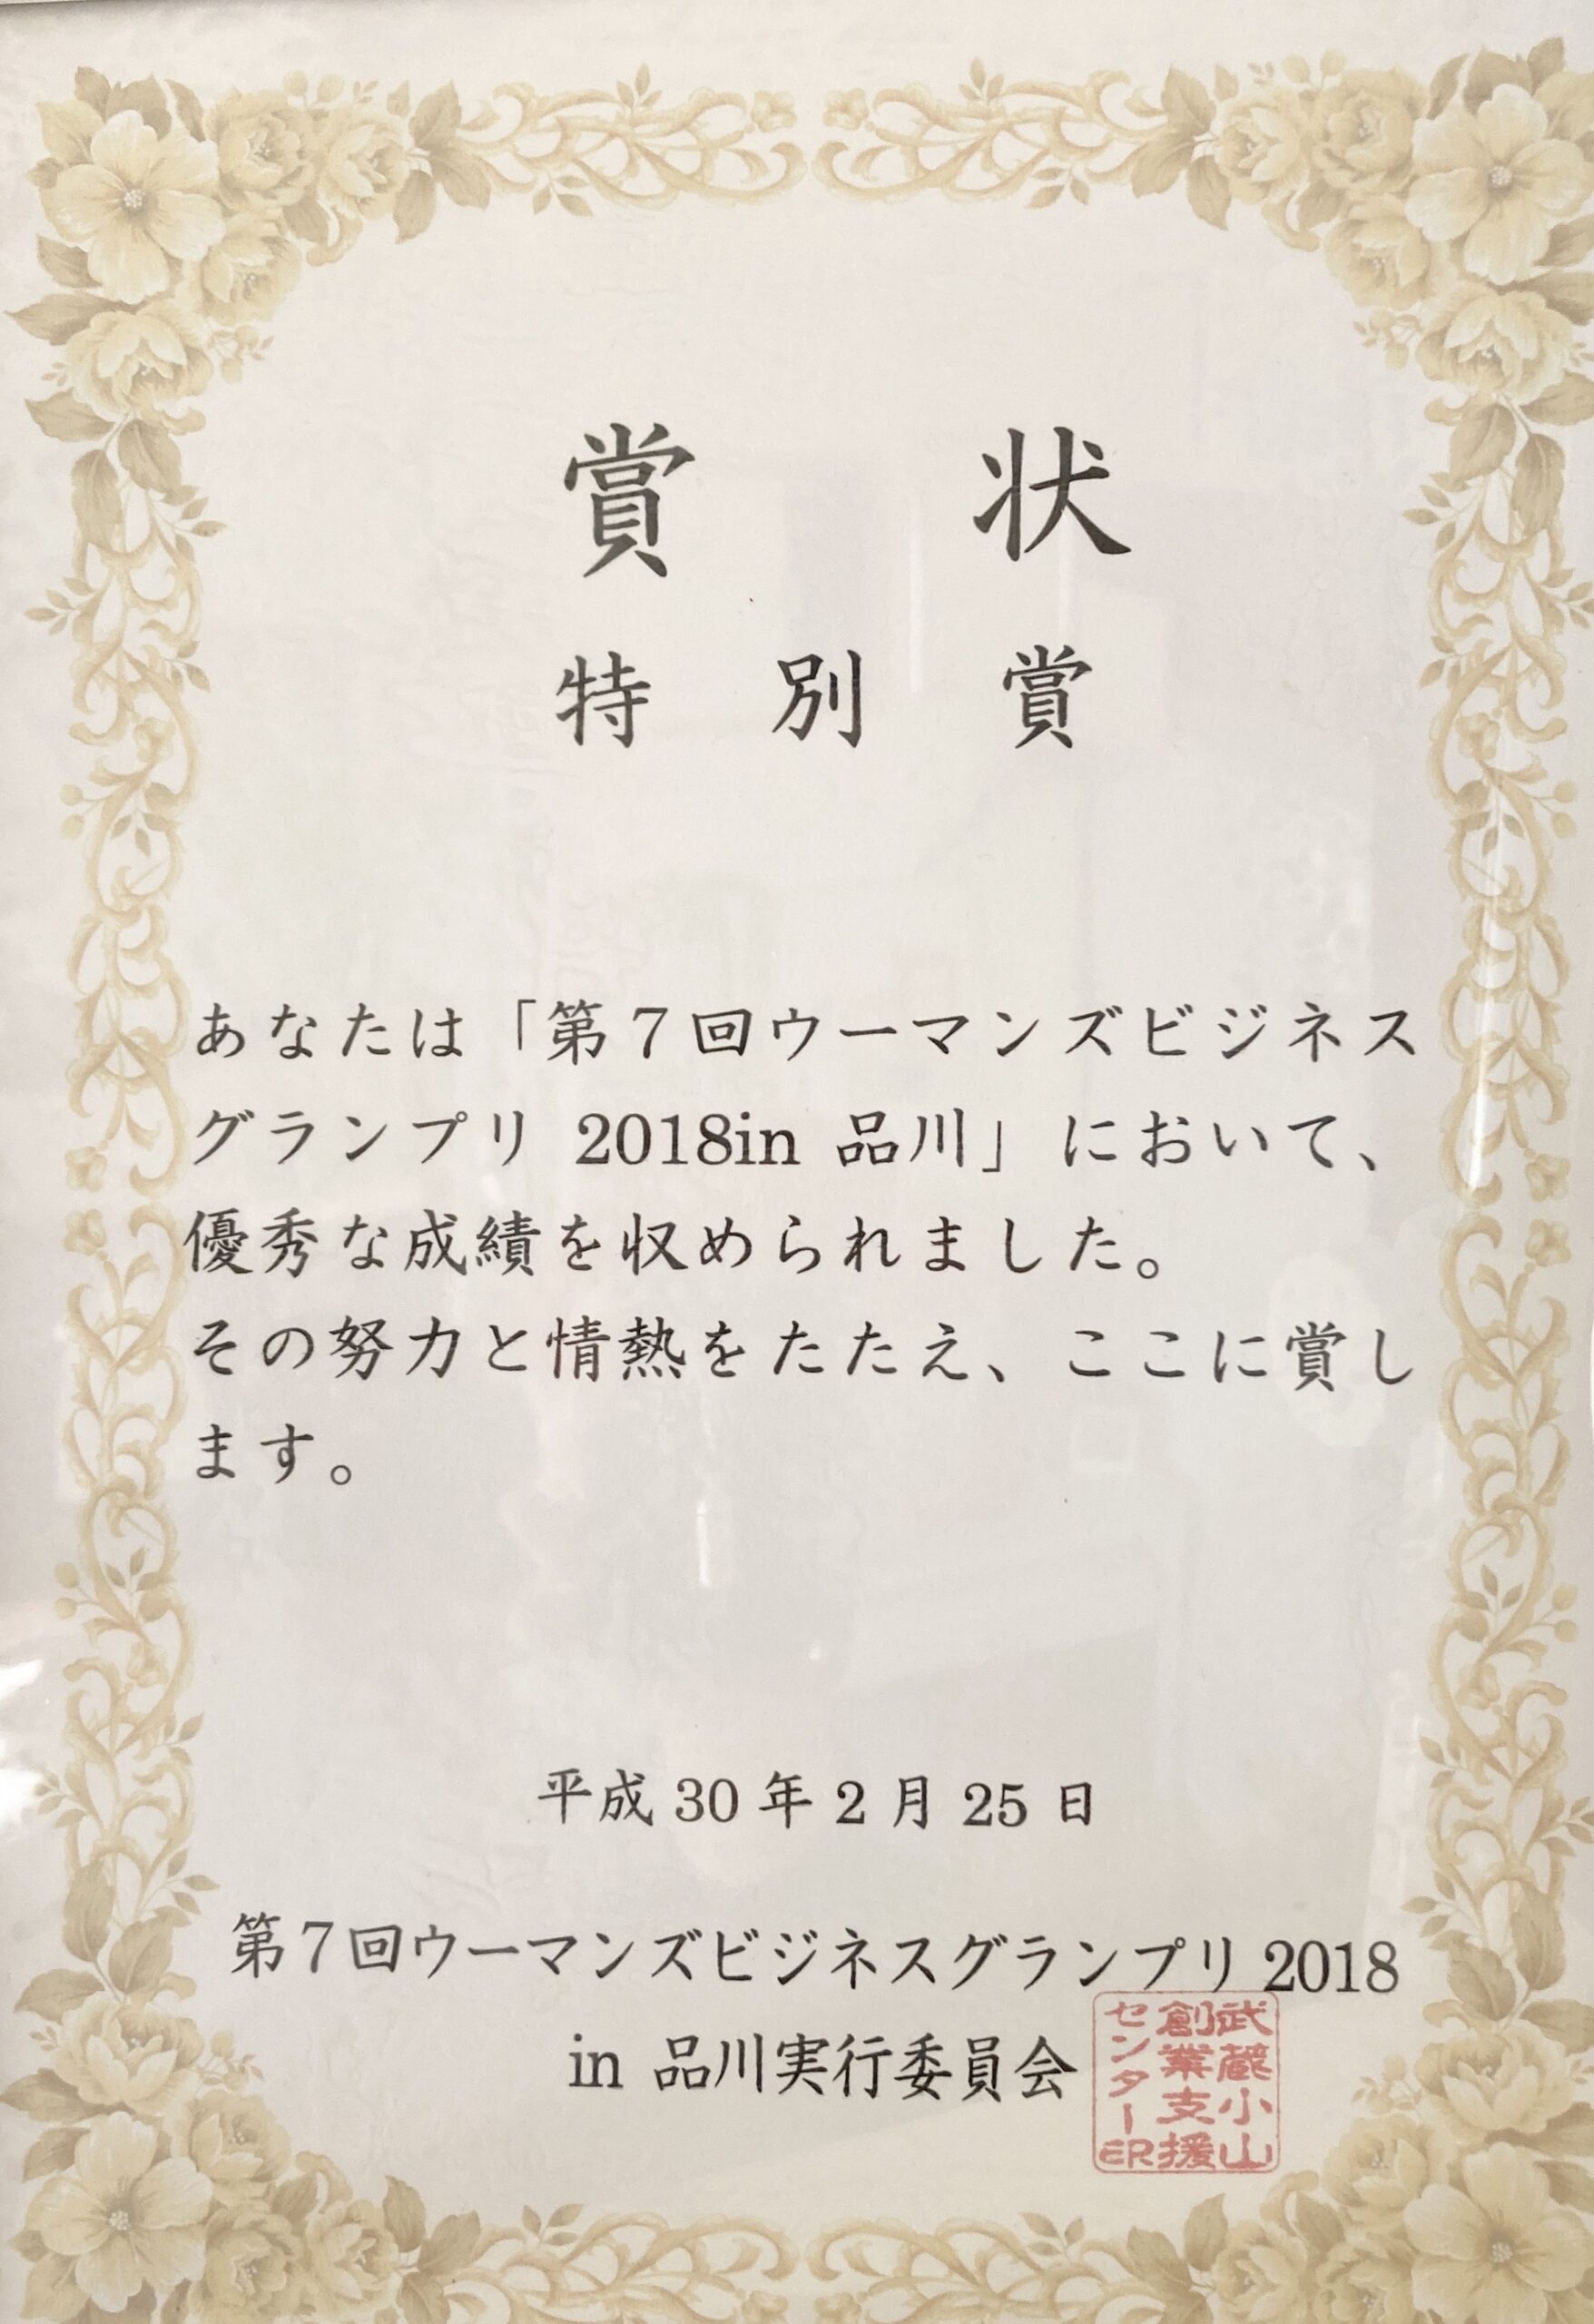 賞状
特別賞
あなたは「第7回ウーマンズビジネス
グランプリ 2018in 品川」において、
優秀な成績を収められました。
その努力と情熱をたたえ、ここに賞し
ます。
平成 30 年 2 月 25 日
第7回ウーマンズビジネスグランプリ 2018
in 品川実行委員会
武蔵小山
創業支援
センター印